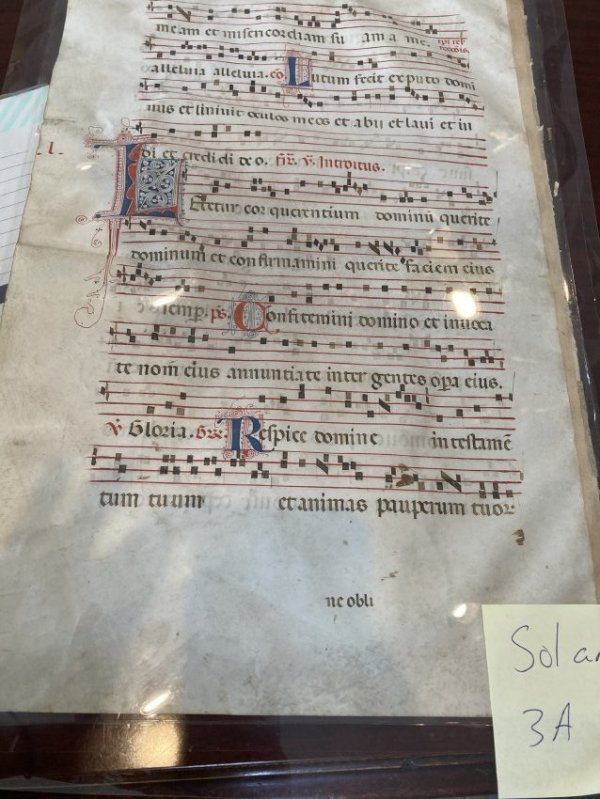 meam et misericordiam su am a me.
alleluia alleluia. co. Lutum fecit ex puto domi
nus et liniuit oculos meos et abii et laui et ui
.l.
di et credi di deo. fīr. ꝟ. Introitus.
Letetur cor querentium dominū querite
dominum et confirmamini querite faciem eius
semp. ps. Confitemini domino et inuoca
te nom̄ eius annuntiate inter gentes opa eius.
ꝟ Gloria. Gr̄. Respice domine in testamē
tum tuum et animas pauperum tuor
ne obli
Sol a
3A